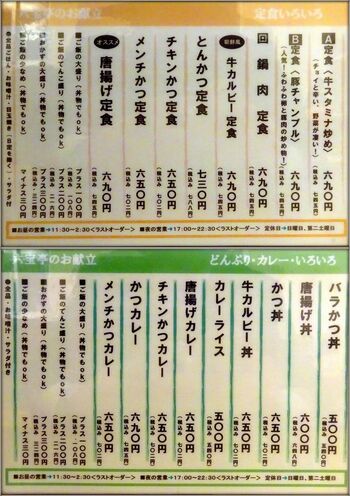 定食いろいろ
A定食〈牛スタミナ炒め〉
(チョイと辛い、野菜が凄い!)
六九〇円
(税込み 七四五)
B定食〈豚チャンプル〉
(人気!ふわふわ卵と豚肉の炒め物!)
六九〇円
(税込み 七四五)
回鍋肉 定食
六九〇円
(税込み 七四五)
朝鮮風
牛カルビー定食
六九〇円
(税込み 七四五)
とんかつ定食
七三〇円
(税込み 七八八)
チキンかつ定食
六五〇円
(税込み 七〇二)
メンチかつ定食
六五〇円
(税込み 七〇二)
オススメ
唐揚げ定食
六九〇円
(税込み 七四五)
■ご飯の大盛り(丼物でもok)
プラス一〇〇円
■ご飯のてんこ盛り(丼物でもok)
プラス二〇〇円
■おかずの大盛り(丼物でもok)
プラス三〇〇円
■ご飯の少なめ(丼物でもok)
マイナス三〇円
亭のお献立
■お昼の営業→11:30~2:30<ラストオーダー> ■夜の営業→17:00~22:30<ラストオーダー> 定休日→日曜日、第二土曜日
どんぶり・カレー・いろいろ
バラかつ丼
五〇〇円
(税込み 五四〇)
唐揚げ丼
六五〇円
(税込み 七〇二)
かつ丼
六五〇円
(税込み 七〇二)
牛カルビー丼
六五〇円
(税込み 七〇二)
カレーライス
五〇〇円
(税込み 五四〇)
唐揚げカレー
六五〇円
(税込み 七〇二)
チキンかつカレー
六五〇円
(税込み 七〇二)
かつカレー
六九〇円
(税込み 七四五)
メンチかつカレー
六五〇円
(税込み 七〇二)
■ご飯の大盛り(丼物でもok)
プラス一〇〇円
(税込み 一〇八)
■ご飯のてんこ盛り(丼物でもok)
プラス二〇〇円
(税込み 二一六)
■おかずの大盛り(丼物でもok)
プラス三〇〇円
(税込み 三二四)
■ご飯の少なめ(丼物でもok)
マイナス三〇円
●全品・お味噌汁・サラダ付き
宝亭のお献立
■お昼の営業→11:30~2:30<ラストオーダー> ■夜の営業→17:00~22:30<ラストオーダー> 定休日→日曜日、第二土曜日